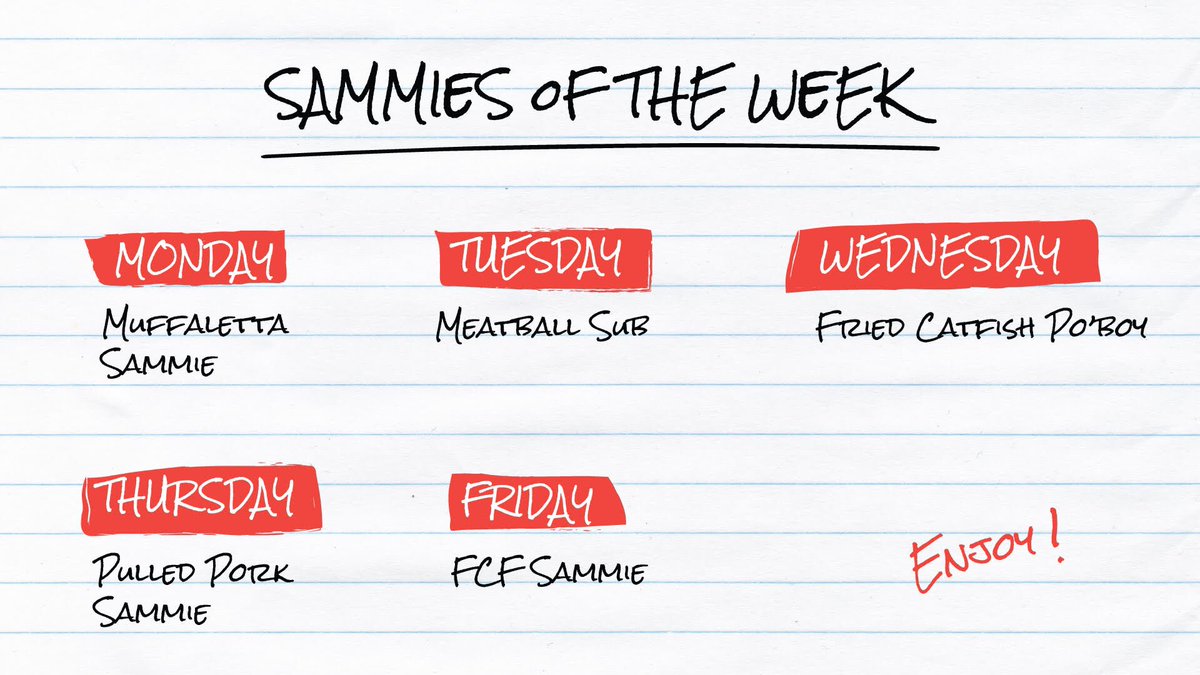 SAMMIES OF THE WEEK
MONDAY
MUFFALETTA
SAMMIE
TUESDAY
MEATBALL SUB
WEDNESDAY
FRIED CATFISH PO'BOY
THURSDAY
PULLED PORK
SAMMIE
FRIDAY
FCF SAMMIE
ENJOY!